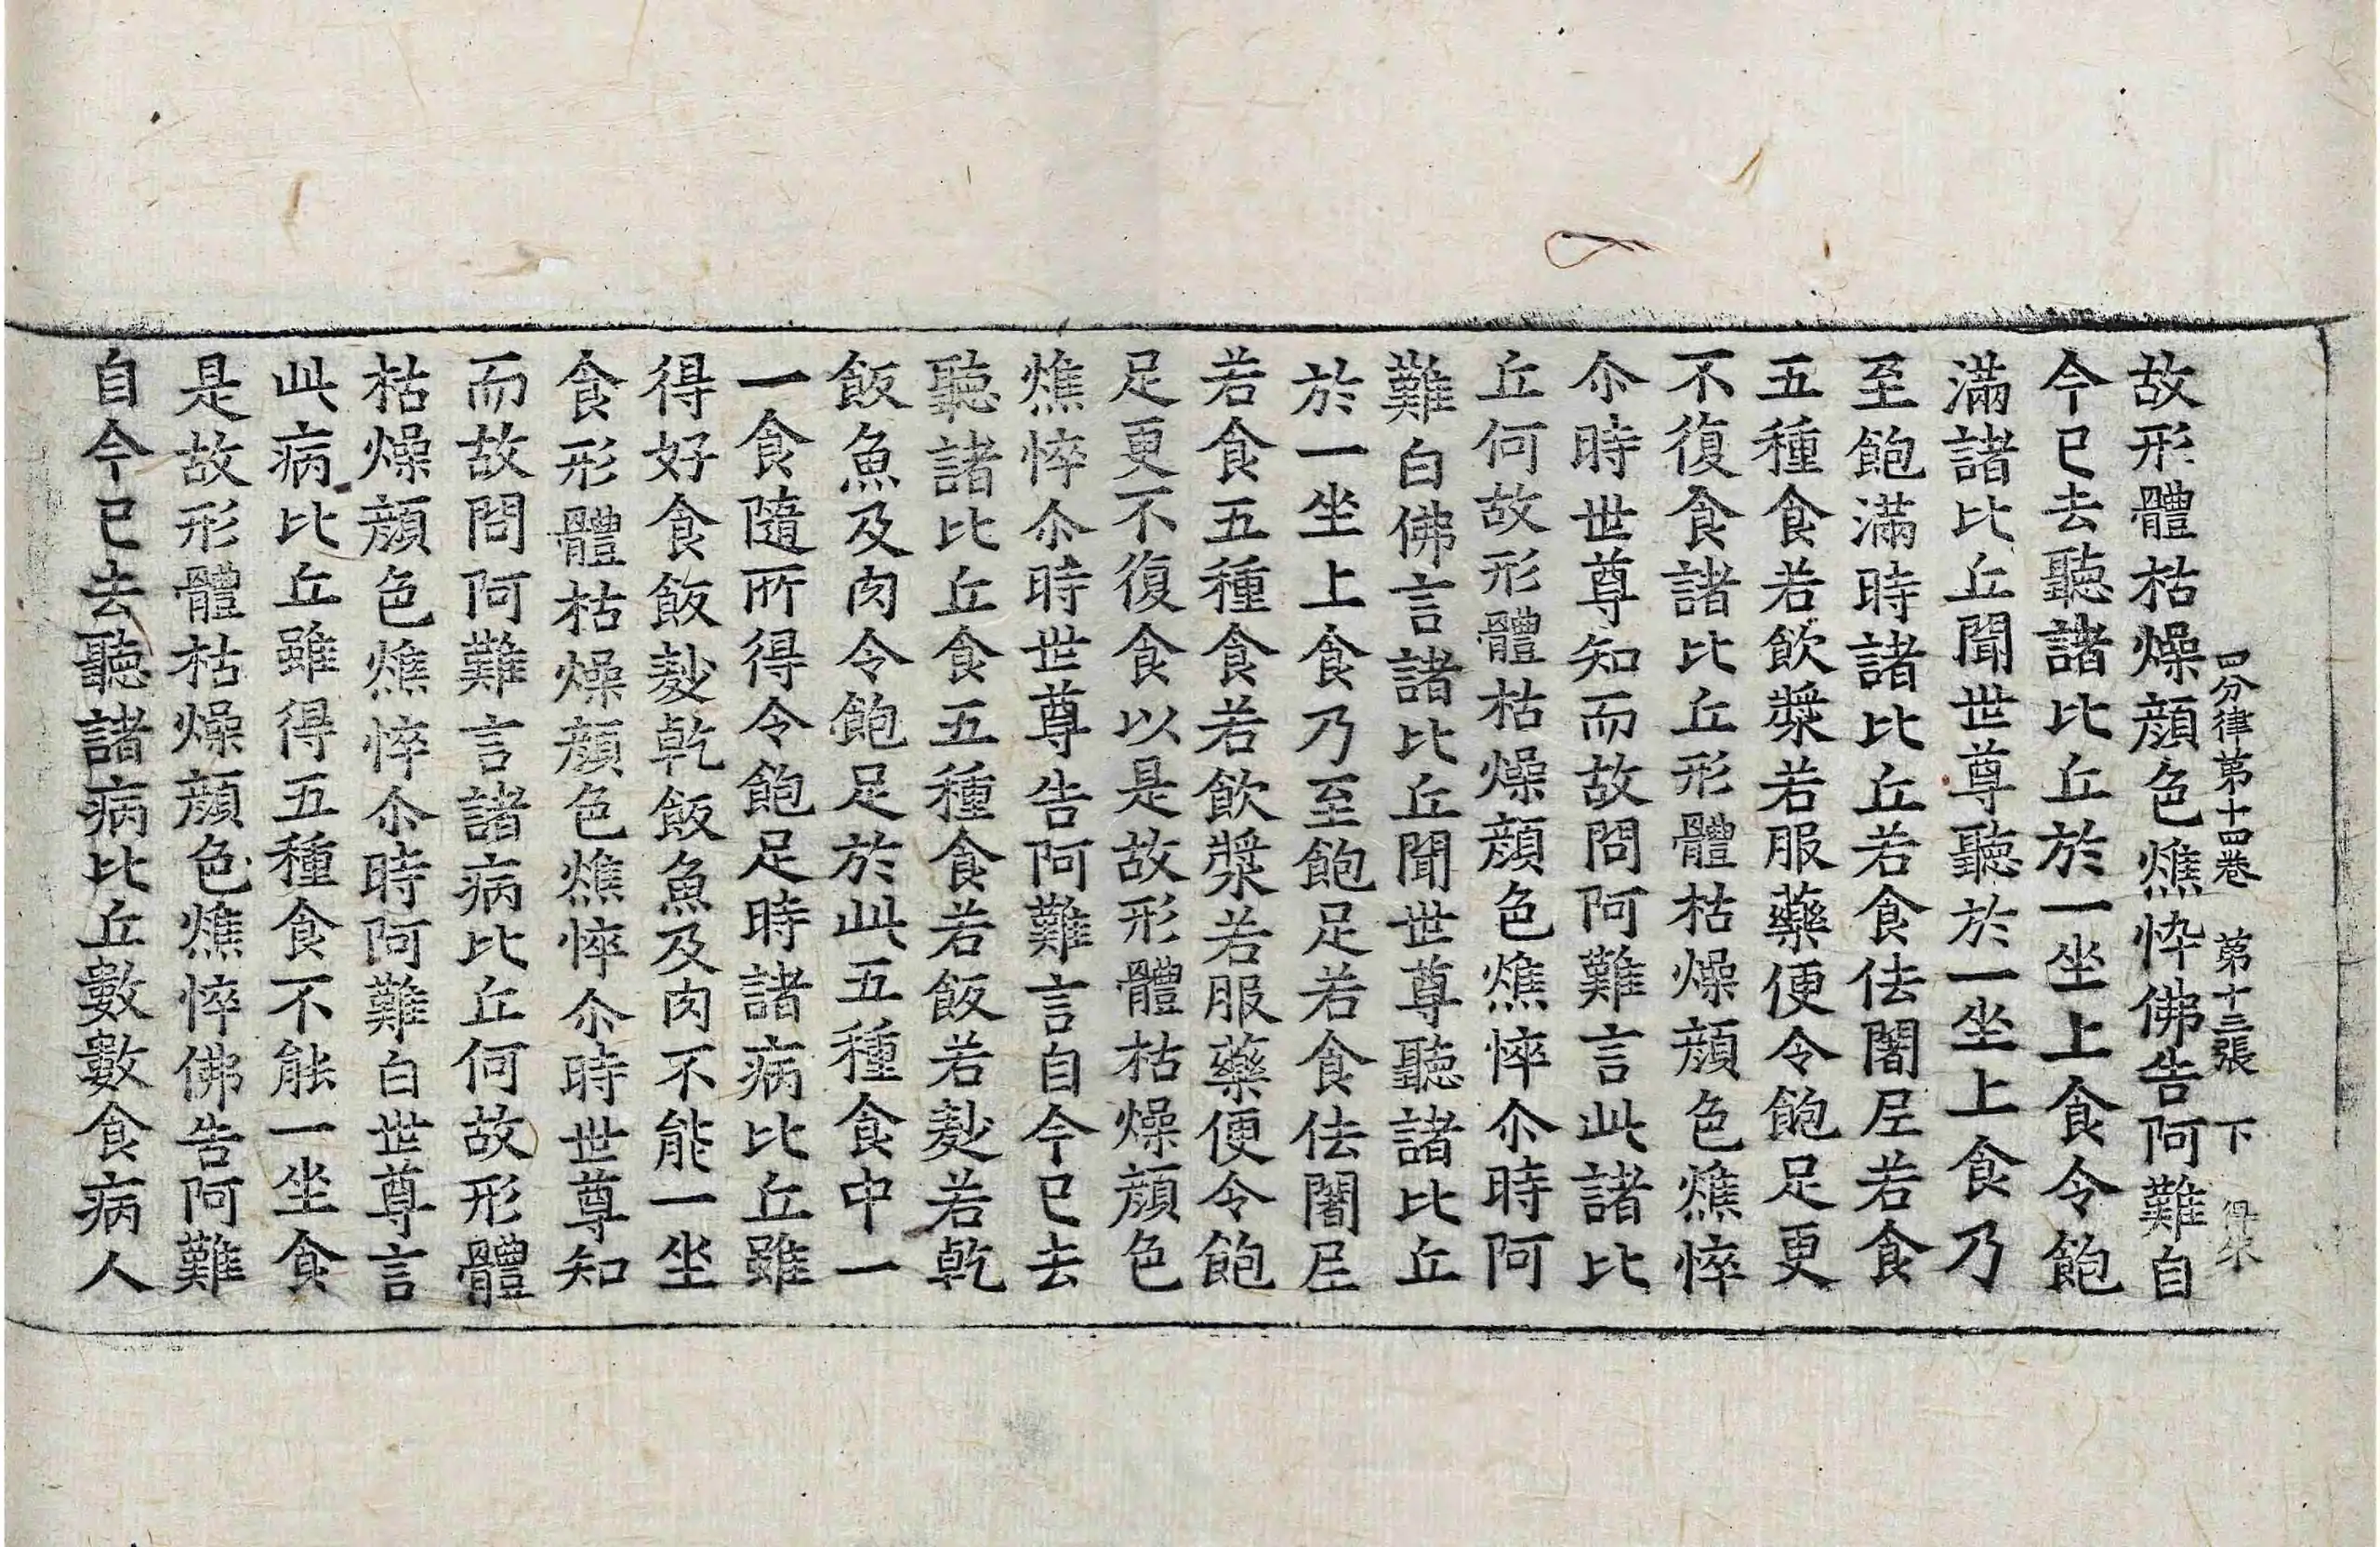 四分律第十四卷 第十三張 下
故形體枯燥顔色燋忰佛告阿難自
今已去聽諸比丘於一坐上食令飽
滿諸比丘聞世尊聽於一坐上食乃
至飽滿時諸比丘若食佉闍尼若食
五種食若飲漿若服藥便令飽足更
不復食諸比丘形體枯燥顔色燋悴
尒時世尊知而故問阿難言此諸比
丘何故形體枯燥顔色燋悴尒時阿
難白佛言諸比丘聞世尊聽諸比丘
於一坐上食乃至飽足若食佉闍尼
若食五種食若飲漿若服藥便令飽
足更不復食以是故形體枯燥顔色
燋悴尒時世尊告阿難言自今已去
聽諸比丘食五種食若飯若麨若乾
飯魚及肉令飽足於此五種食中一
一食隨所得令飽足時諸病比丘雖
得好食飯麨乾飯魚及肉不能一坐
食形體枯燥顔色燋悴尒時世尊知
而故問阿難言諸病比丘何故形體
枯燥顔色燋悴尒時阿難白世尊言
此病比丘雖得五種食不能一坐食
是故形體枯燥顔色燋悴佛告阿難
自今已去聽諸病比丘數數食病人